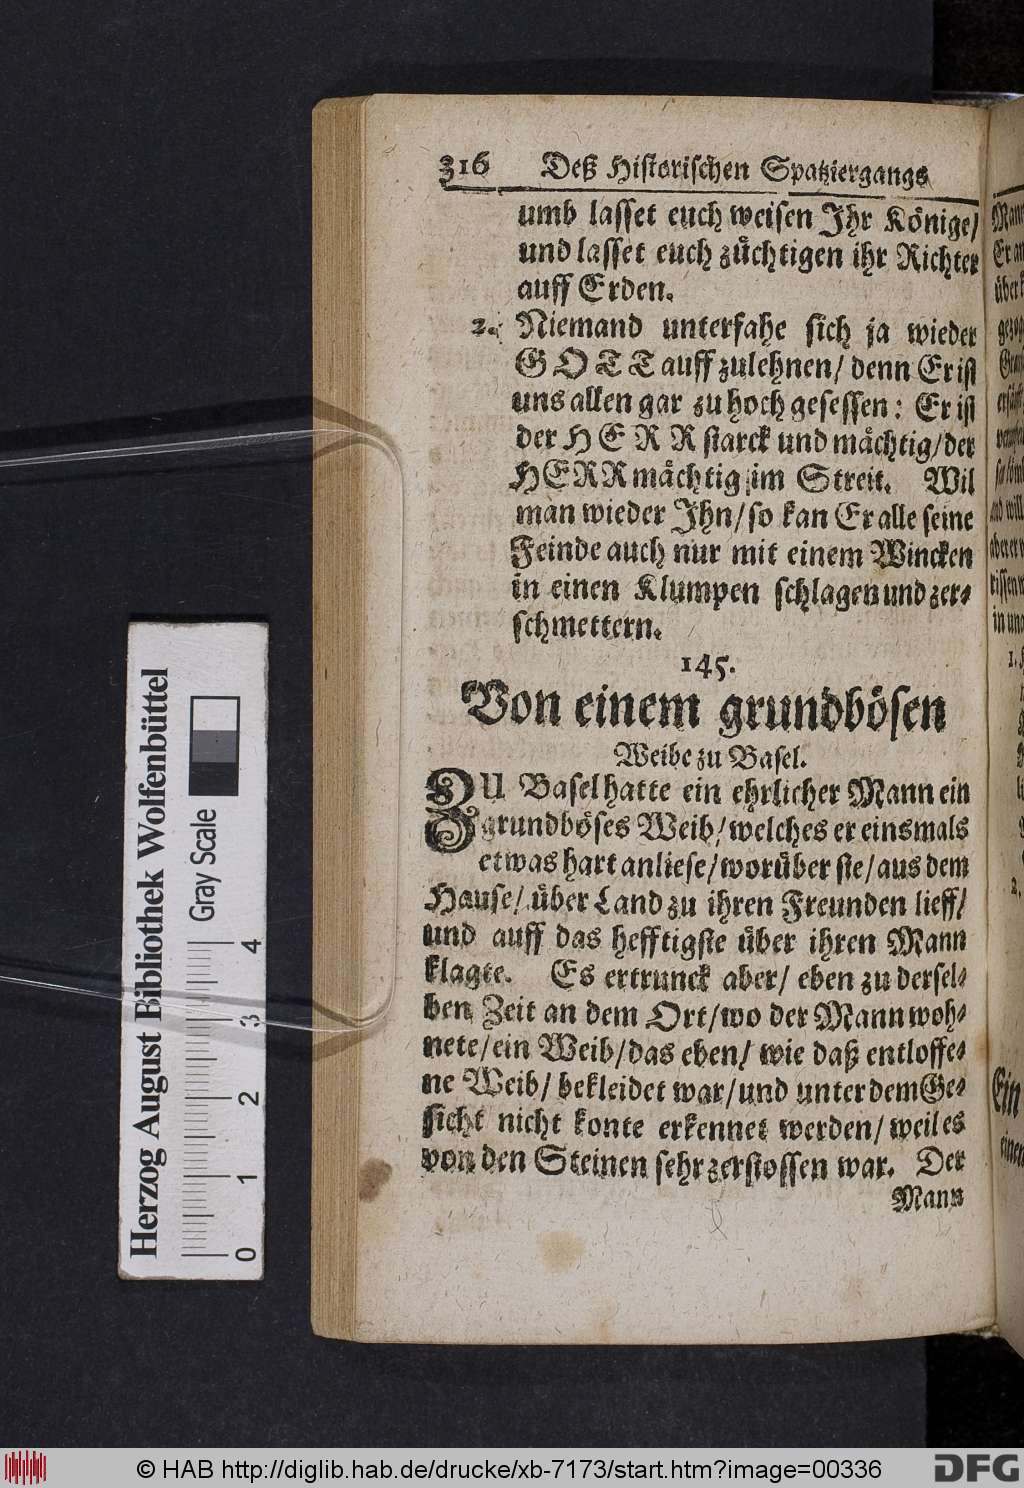 316 Deß Historischen Spatziergangs
umb lasset euch weisen Ihr Könige/
und lasset euch züchtigen ihr Richter
auff Erden.
2. Niemand unterfahe sich ja wieder
GOTT auff zulehnen/ denn Er ist
uns allen gar zu hoch gesessen: Er ist
der HERR starck und mächtig/ der
HERR mächtig im Streit. Wil
man wieder Ihn/ so kan Er alle seine
Feinde auch nur mit einem Wincken
in einen Klumpen schlagen und zer-
schmettern.
145.
Von einem grundbösen
Weibe zu Basel.
ZU Basel hatte ein ehrlicher Mann ein
grundböses Weib/ welches er einsmals
etwas hart anliese/ worüber sie/ aus dem
Hause/ über Land zu ihren Freunden lieff/
und auff das hefftigste über ihren Mann
klagte. Es ertrunck aber/ eben zu dersel-
ben Zeit an dem Ort/ wo der Mann woh-
nete/ ein Weib/ das eben/ wie daß entloffe-
ne Weib/ bekleidet war/ und unter dem Ge-
sicht nicht konte erkennet werden/ weil es
von den Steinen sehr zerstossen war. Der
Mann
Herzog August Bibliothek Wolfenbüttel
Gray Scale
0 1 2 3 4
© HAB http://diglib.hab.de/drucke/xb-7173/start.htm?image=00336
DFG